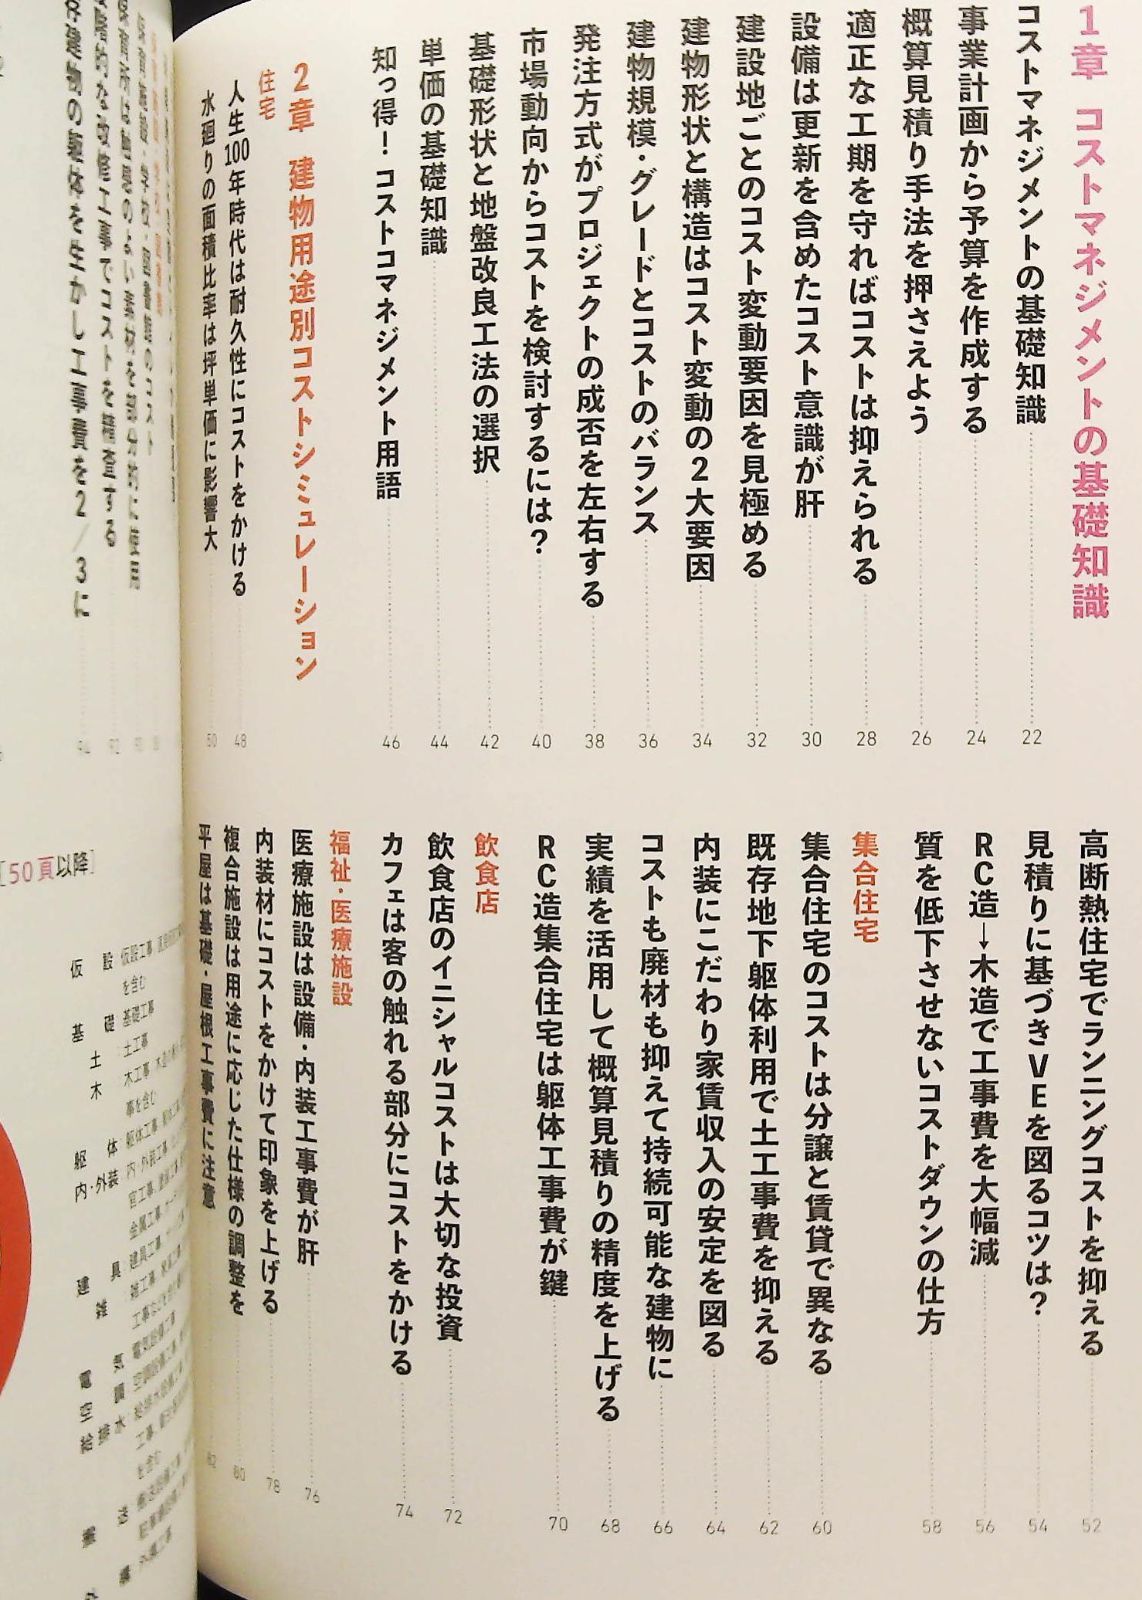 1章 コストマネジメントの基礎知識
コストマネジメントの基礎知識 22
事業計画から予算を作成する 24
概算見積り手法を押さえよう 26
適正な工期を守ればコストは抑えられる 28
設備は更新を含めたコスト意識が肝 30
建設地ごとのコスト変動要因を見極める 32
建物形状と構造はコスト変動の2大要因 34
建物規模・グレードとコストのバランス 36
発注方式がプロジェクトの成否を左右する 38
市場動向からコストを検討するには? 40
基礎形状と地盤改良工法の選択 42
単価の基礎知識 44
知っ得!コストコマネジメント用語 46
2章 建物用途別コストシミュレーション
住宅
人生100年時代は耐久性にコストをかける 48
水廻りの面積比率は坪単価に影響大 50
高断熱住宅でランニングコストを抑える 52
見積りに基づきVEを図るコツは? 54
RC造→木造で工事費を大幅減 56
質を低下させないコストダウンの仕方 58
集合住宅
集合住宅のコストは分譲と賃貸で異なる 60
既存地下躯体利用で土工事費を抑える 62
内装にこだわり家賃収入の安定を図る 64
コストも廃材も抑えて持続可能な建物に 66
実績を活用して概算見積りの精度を上げる 68
RC造集合住宅は躯体工事費が鍵 70
飲食店
飲食店のイニシャルコストは大切な投資 72
カフェは客の触れる部分にコストをかける 74
福祉・医療施設
医療施設は設備・内装工事費が肝 76
内装材にコストをかけて印象を上げる 78
複合施設は用途に応じた仕様の調整を 80
平屋は基礎・屋根工事費に注意 82
保育施設・学校・図書館のコスト
保育所は触感のよい素材を部分的に使用
階的な改修工事でコストを精査する 92
存建物の躯体を生かし工事費を2/3に 94
[50頁以降]
仮設 仮設工事
を含む
基礎 基礎工事
土 土工事
木 木工事
事を含む
躯体 躯体工事
内・外装 内・外装工事
官工事
金属工事
建具 建具工事
雑 雑工事
電気 電気設備工事
空調 空調設備工事
給排水 給排水設備工事
を含む
外構工事